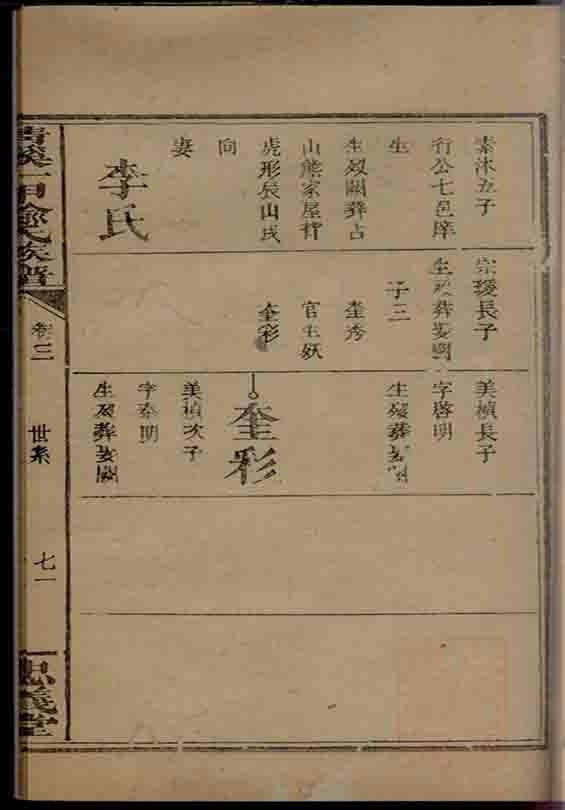 素沐五子
行公七邑庠
生
生歿闕葬占
山熊家屋背
虎形辰山戌
向
妻
李氏
宗瑷長子
生歿葬妻闕
子三
奎秀
官生妖
奎彩
美楨長子
字啓明
生歿葬妻闕
奎彩
美楨次子
字泰朗
生歿葬妻闕
卷三
世系
七一
忠義堂